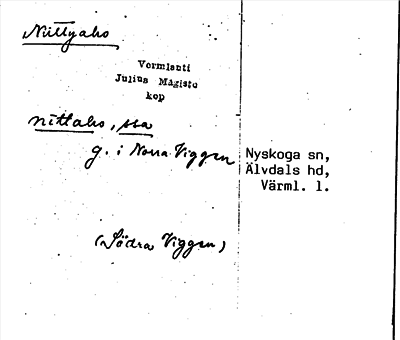 Niittyaho
Vermlanti
Julius Mägiste
kop
nīttaho, ssa
g. i Norra Viggen
Nyskoga sn,
Älvdals hd,
Värml. l.
(Södra Viggen)